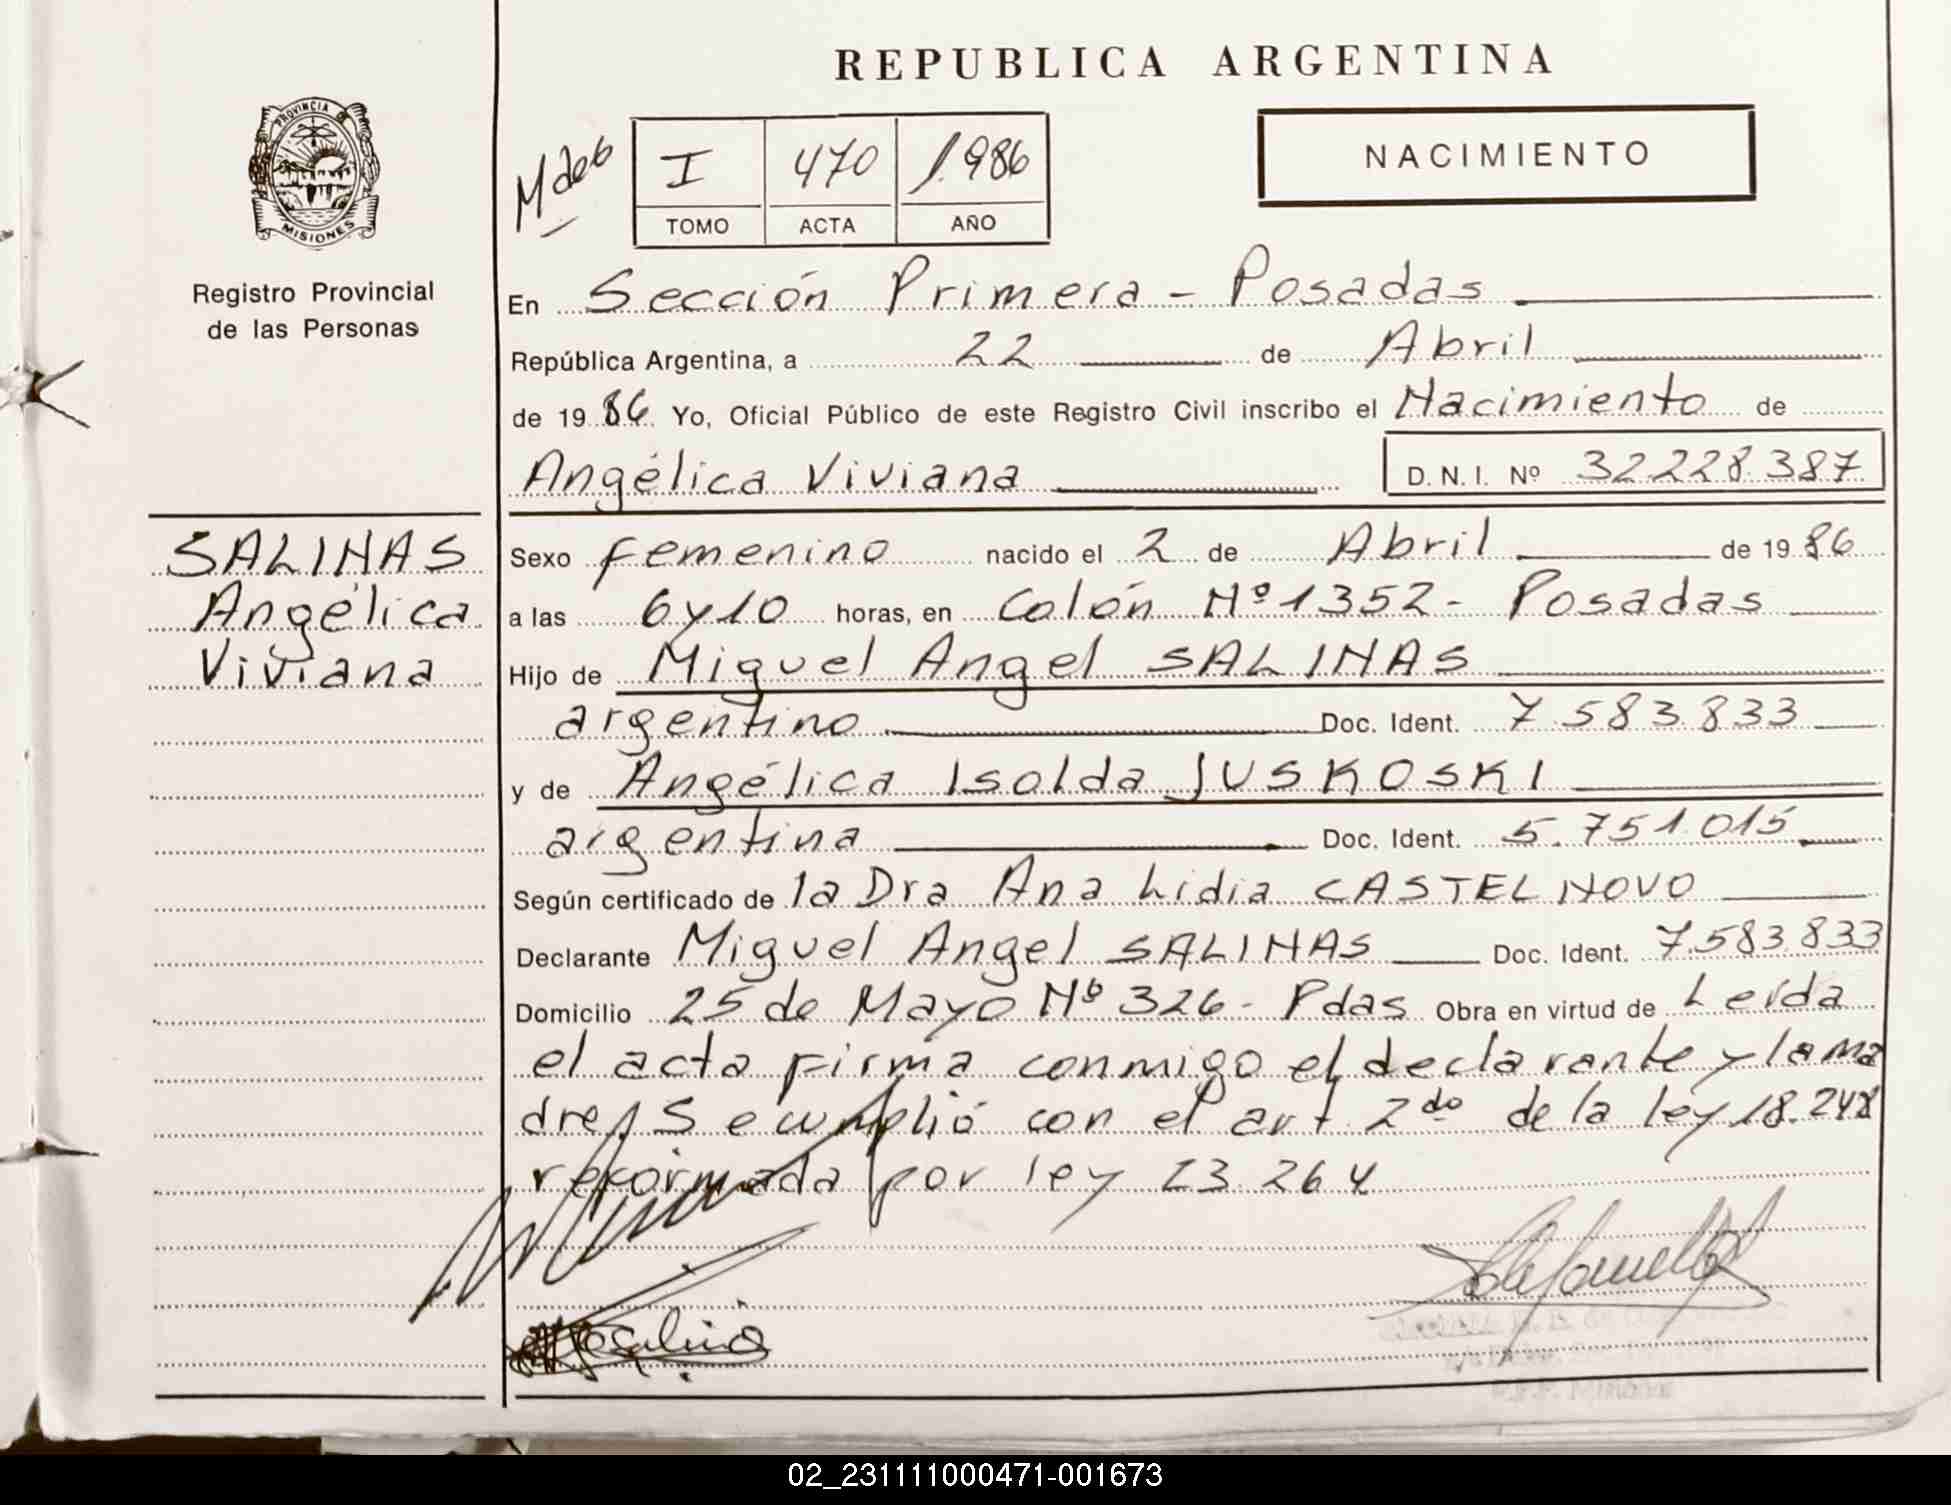 REPUBLICA ARGENTINA
PROVINCIA DE
MISIONES
Registro Provincial
de las Personas
I 470 1.986
TOMO ACTA AÑO
NACIMIENTO
En Sección Primera - Posadas
República Argentina, a 22 de Abril
de 19 86 Yo, Oficial Público de este Registro Civil inscribo el Nacimiento de
Angélica Viviana D. N. I. Nº 32.228.387
SALINAS
Angélica
Viviana
Sexo femenino nacido el 2 de Abril de 19 86
a las 6 y 10 horas, en Colón Nº 1352 - Posadas
Hijo de Miguel Angel SALINAS
argentino Doc. Ident. 7.583.833
y de Angélica Isolda JUSKOSKI
argentina Doc. Ident. 5.751.015
Según certificado de la Dra Ana Lidia CASTELNOVO
Declarante Miguel Angel SALINAS Doc. Ident. 7.583.833
Domicilio 25 de Mayo Nº 326 - Pdas Obra en virtud de Leída
el acta firma conmigo el declarante y la ma
dre / Se cumplió con el art 2do de la ley 18.248
reformada por ley 23.264
02_231111000471-001673